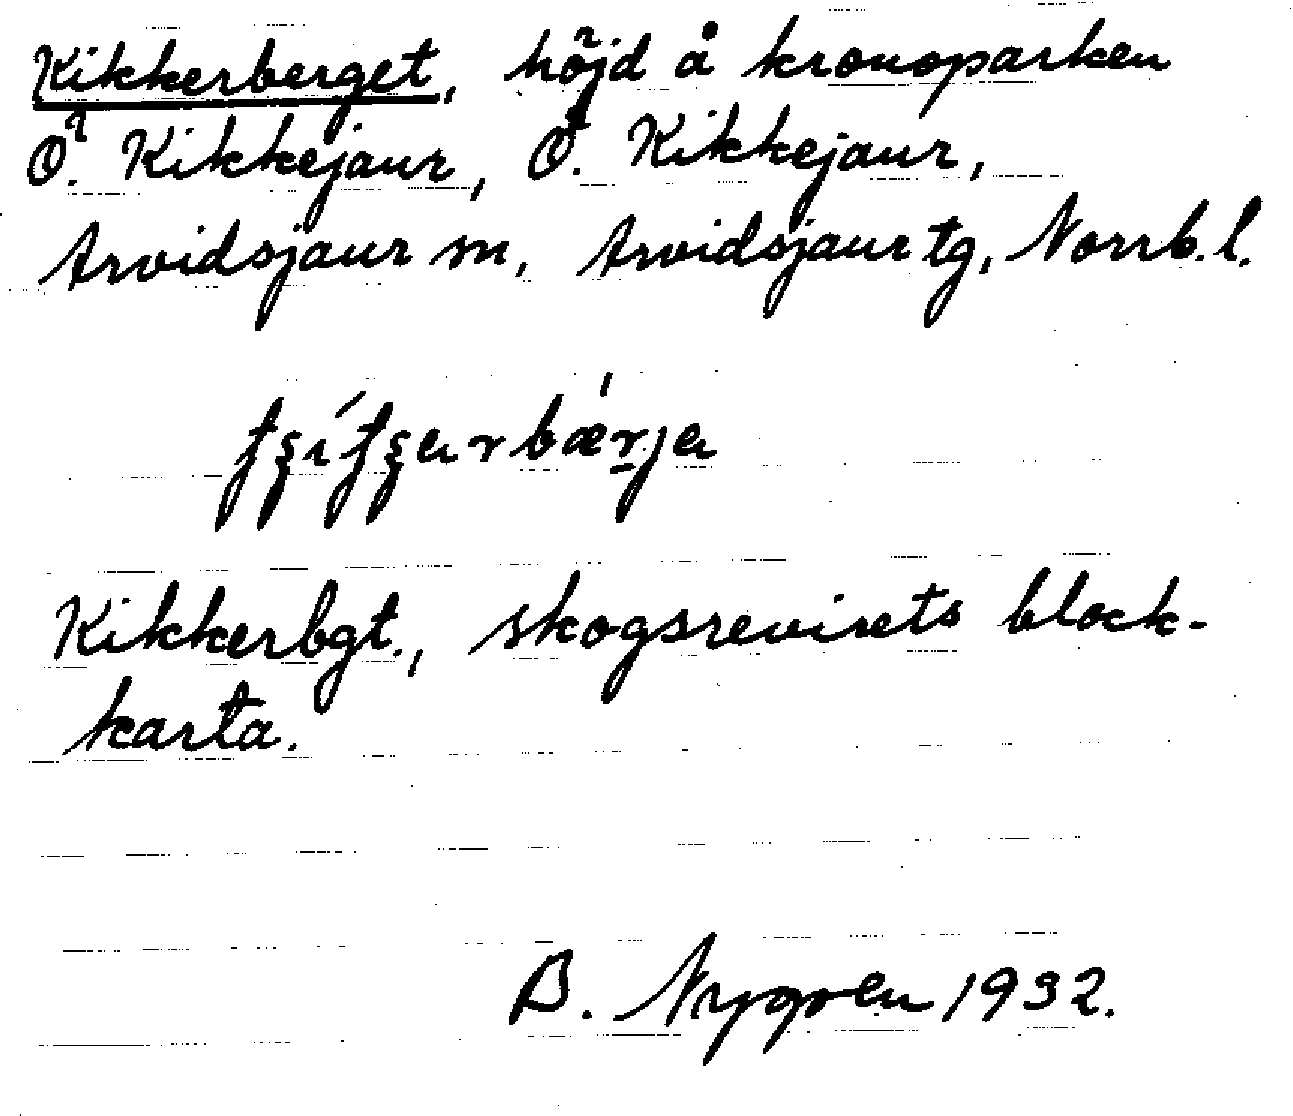 Kikkerberget, höjd å kronoparken
Ö. Kikkejaur, Ö. Kikkejaur,
Arvidsjaur sn, Arvidsjaur tg, Norrb. l.
Kikkerbgt., skogsrevirets block-
karta.
B. Nygren 1932.